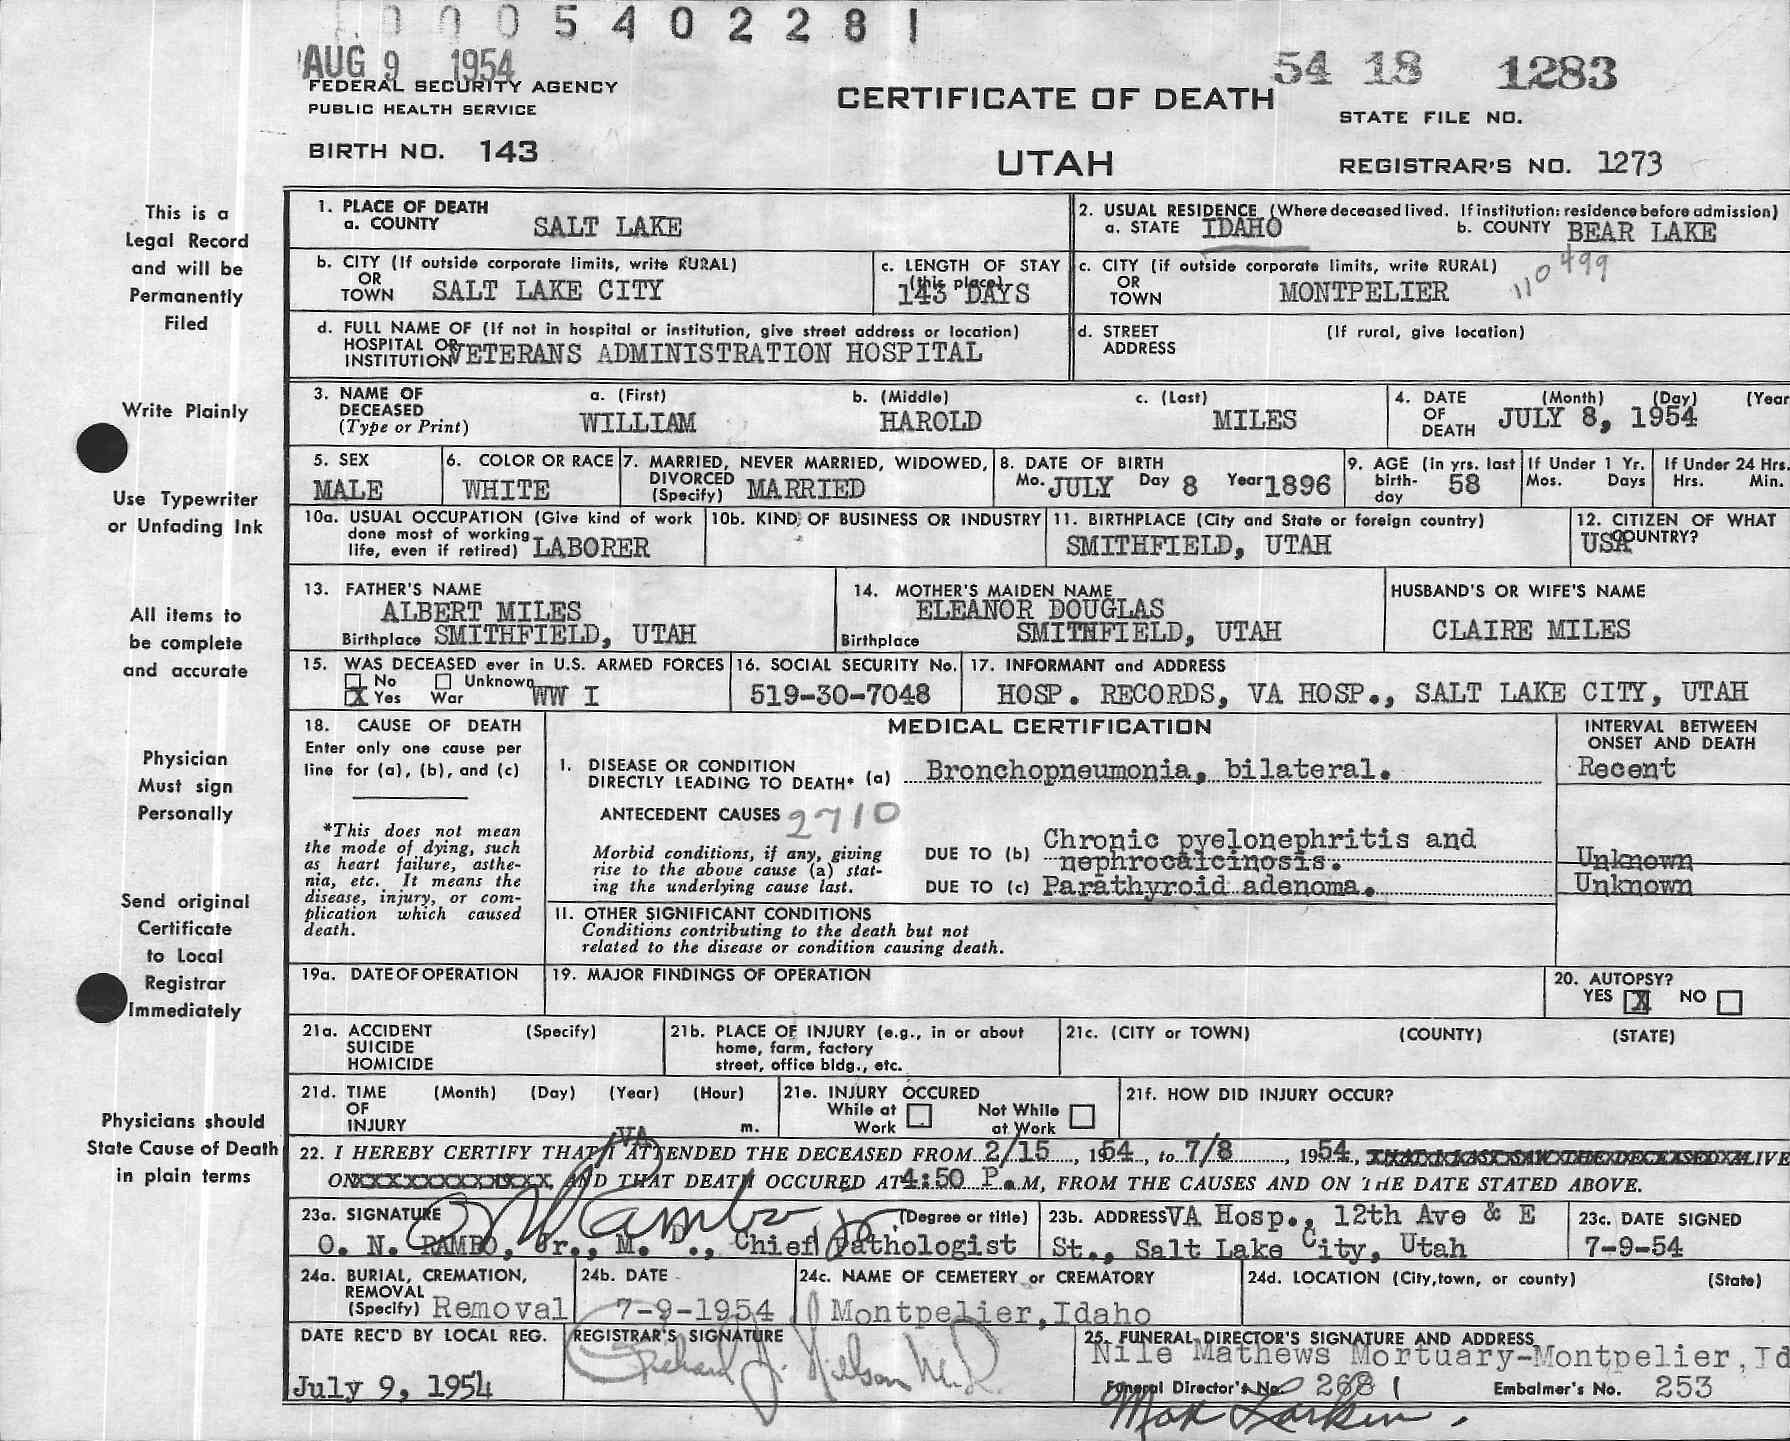 0 0 0 5 4 0 2 2 8 1
AUG 9 1954
FEDERAL SECURITY AGENCY
PUBLIC HEALTH SERVICE
BIRTH NO. 143
CERTIFICATE OF DEATH
UTAH
54 18 1283
STATE FILE NO.
REGISTRAR'S NO. 1273
This is a
Legal Record
and will be
Permanently
Filed
Write Plainly
Use Typewriter
or Unfading Ink
All items to
be complete
and accurate
Physician
Must sign
Personally
Send original
Certificate
to Local
Registrar
Immediately
Physicians should
State Cause of Death
in plain terms
1. PLACE OF DEATH
a. COUNTY SALT LAKE
2. USUAL RESIDENCE (Where deceased lived. If institution: residence before admission)
a. STATE IDAHO b. COUNTY BEAR LAKE
b. CITY (If outside corporate limits, write RURAL)
OR
TOWN SALT LAKE CITY
c. LENGTH OF STAY
(this place)
143 DAYS
c. CITY (if outside corporate limits, write RURAL)
OR
TOWN MONTPELIER
110499
d. FULL NAME OF (If not in hospital or institution, give street address or location)
HOSPITAL OR
INSTITUTION VETERANS ADMINISTRATION HOSPITAL
d. STREET (If rural, give location)
ADDRESS
3. NAME OF a. (First) b. (Middle) c. (Last)
DECEASED
(Type or Print) WILLIAM HAROLD MILES
4. DATE (Month) (Day) (Year
OF
DEATH JULY 8, 1954
5. SEX
MALE
6. COLOR OR RACE
WHITE
7. MARRIED, NEVER MARRIED, WIDOWED,
DIVORCED
(Specify) MARRIED
8. DATE OF BIRTH
Mo. JULY Day 8 Year 1896
9. AGE (In yrs. last
birth-
day 58
If Under 1 Yr.
Mos. Days
If Under 24 Hrs.
Hrs. Min.
10a. USUAL OCCUPATION (Give kind of work
done most of working
life, even if retired) LABORER
10b. KIND OF BUSINESS OR INDUSTRY
11. BIRTHPLACE (City and State or foreign country)
SMITHFIELD, UTAH
12. CITIZEN OF WHAT
COUNTRY?
USA
13. FATHER'S NAME
ALBERT MILES
Birthplace SMITHFIELD, UTAH
14. MOTHER'S MAIDEN NAME
ELEANOR DOUGLAS
Birthplace SMITHFIELD, UTAH
HUSBAND'S OR WIFE'S NAME
CLAIRE MILES
15. WAS DECEASED ever in U.S. ARMED FORCES
No Unknown
X Yes War WW I
16. SOCIAL SECURITY No.
519-30-7048
17. INFORMANT and ADDRESS
HOSP. RECORDS, VA HOSP., SALT LAKE CITY, UTAH
18. CAUSE OF DEATH
Enter only one cause per
line for (a), (b), and (c)
*This does not mean
the mode of dying, such
as heart failure, asthe-
nia, etc. It means the
disease, injury, or com-
plication which caused
death.
MEDICAL CERTIFICATION
INTERVAL BETWEEN
ONSET AND DEATH
I. DISEASE OR CONDITION
DIRECTLY LEADING TO DEATH* (a) Bronchopneumonia, bilateral. Recent
ANTECEDENT CAUSES 2710
Morbid conditions, if any, giving
rise to the above cause (a) stat-
ing the underlying cause last.
DUE TO (b) Chronic pyelonephritis and
nephrocalcinosis. Unknown
DUE TO (c) Parathyroid adenoma. Unknown
II. OTHER SIGNIFICANT CONDITIONS
Conditions contributing to the death but not
related to the disease or condition causing death.
19a. DATE OF OPERATION
19. MAJOR FINDINGS OF OPERATION
20. AUTOPSY?
YES X NO
21a. ACCIDENT (Specify)
SUICIDE
HOMICIDE
21b. PLACE OF INJURY (e.g., in or about
home, farm, factory
street, office bldg., etc.
21c. (CITY or TOWN) (COUNTY) (STATE)
21d. TIME (Month) (Day) (Year) (Hour)
OF
INJURY m.
21e. INJURY OCCURED
While at Work Not While at Work
21f. HOW DID INJURY OCCUR?
VA
22. I HEREBY CERTIFY THAT I ATTENDED THE DECEASED FROM 2/15, 1954, to 7/8, 1954, THAT I LAST SAW THE DECEASED ALIVE
ON XXXXXXXXXX 19XX, AND THAT DEATH OCCURED AT 4:50 P.M, FROM THE CAUSES AND ON THE DATE STATED ABOVE.
23a. SIGNATURE O N Rambo Jr. (Degree or title)
O. N. RAMBO, Jr., M. D., Chief Pathologist
23b. ADDRESS VA Hosp., 12th Ave & E
St., Salt Lake City, Utah
23c. DATE SIGNED
7-9-54
24a. BURIAL, CREMATION,
REMOVAL
(Specify) Removal
24b. DATE
7-9-1954
24c. NAME OF CEMETERY or CREMATORY
Montpelier, Idaho
24d. LOCATION (City, town, or county) (State)
DATE REC'D BY LOCAL REG.
July 9, 1954
REGISTRAR'S SIGNATURE
Richard J. Nielson M.D.
25. FUNERAL DIRECTOR'S SIGNATURE AND ADDRESS
Nile Mathews Mortuary-Montpelier, Id
Funeral Director's No. 268 1 Embalmer's No. 253
Max Larkin.